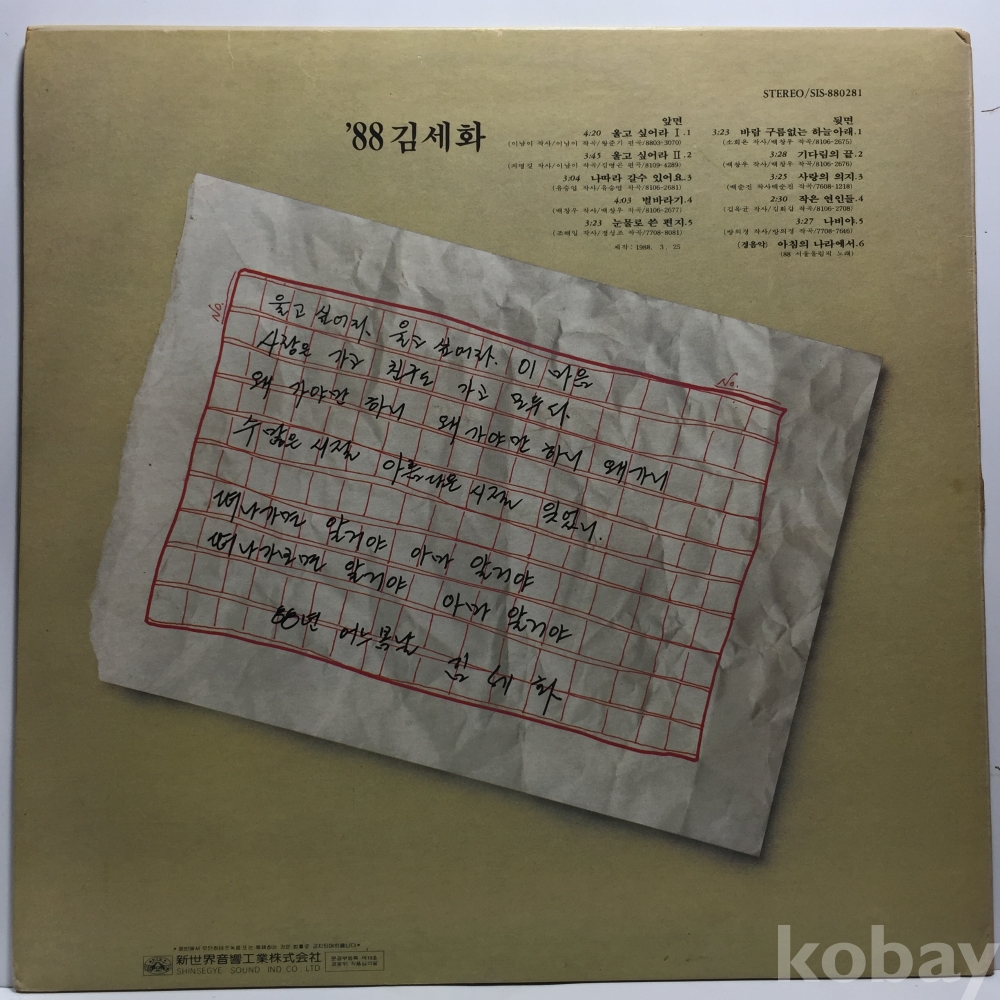 STEREO/SIS-880281
'88 김세화
앞면
4:20 울고 싶어라 Ⅰ.1
(이남이 작사/이남이 작곡/황준기 편곡/8803-3070)
3:45 울고 싶어라 Ⅱ.2
작사/이남이 작곡/김명곤 편곡/8109-4289)
3:04 나따라 갈수 있어요.3
(유승엽 작사/유승엽 작곡/8106-2681)
4:03 별바라기.4
(배창우 작사/배창우 작곡/8106-2677)
3:23 눈물로 쓴 편지.5
(조해일 작사/정성조 작곡/7708-8081)
제작: 1988. 3. 25
뒷면
3:23 바람 구름없는 하늘아래.1
(소희은 작사/배창우 작곡/8106-2675)
3:28 기다림의 끝.2
(배창우 작사/배창우 작곡/8106-2676)
3:25 사랑의 의지.3
(배순진 작사배순진 작곡/7608-1218)
2:30 작은 연인들.4
작사/김희갑 작곡/8106-2708)
3:27 나비야.5
(방의경 작사/방의경 작곡/7708-7646)
(경음악) 아침의 나라에서.6
(88 서울올림픽 노래)
No.
No.
울고 싶어라. 울고 싶어라. 이 마음
사랑은 가고 친구도 가고 모두 다.
왜 가야만 하니 왜 가야만 하니 왜 가니
수많은 시절 아름다운 시절 잊었니.
떠나가면 알거야 아마 알거야
떠나가면 알거야 아마 알거야
88년 어느 봄날 김 세 화
新世界音響工業株式会社
SHINSEGYE SOUND IND.CO.,LTD.
kobay